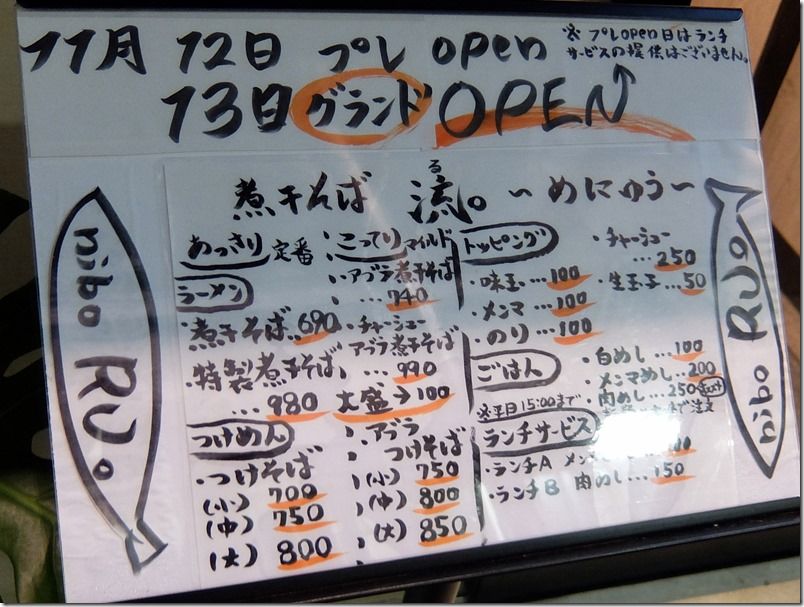 11月 12日 プレ open
※ プレopen日はランチ
サービスの提供はございません。
13日 グランド OPEN
煮干そば 流。 ~めにゅう~
る
nibo RU。
あっさり 定番
ラーメン
・煮干そば 690
・特製煮干そば
... 980
つけめん
・つけそば
(小) 700
(中) 750
(大) 800
こってり マイルド
・アブラ煮干そば
... 740
・チャーシュー
アブラ煮干そば
... 990
大盛→100
・アブラ
つけそば
(小) 750
(中) 800
(大) 850
トッピング
・味玉...100
・メンマ...100
・のり...100
・チャーシュー
...250
・生玉子...50
ごはん
・白めし...100
・メンマめし...200
・肉めし...250
で注文
※平日15:00まで
ランチサービス
・ランチA
・ランチB 肉めし...150
nibo RU。